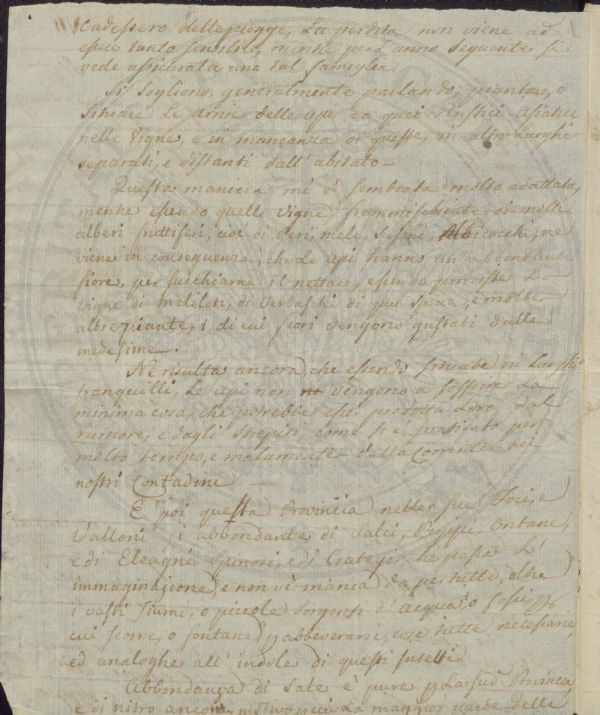 cadessero delle piogge, La perdita non viene ad
essere tanto sensibile, mentre per L'anno seguente si
vede assicurata una tal fameglia.
Si sogliono, generalmente parlando, piantare, o
Le arnie delle api da quei Rustici Asiatici
nelle Vigne, e in mancanza di queste, in altri Luoghi
separati, e distanti dall'abitato –
Questa maniera mi è sembrata molto adattata,
mentre essendo quelle Vigne frammischiate di molti
alberi fruttiferi, cioè di Peri, mele, Susini, Albicocchi, ne
viene in conseguenza, che Le api hanno un'abbondante
fiore, per succhiarne il nettare, essendo provviste Le
vigne di meliloti, di Verbaschi di più specie, e molte
altre piante, i di cui fiori vengono gustati dalle
medesime –
Ne risulta ancora, che essendo situate in Luoghi
tranquilli, Le api non vengono a soffrire La
minima cosa, che potrebbe esser prodotta Loro dal
rumore, e dagli strepiti, come si è praticato per
molto tempo, e malamente dalla corrente dei
nostri Contadini –
E' poi questa Provincia nelle sue Foci, e
Valloni sì abbondante di Salci, Pioppi, Ontani,
e di Eleagni spinosi, e di Crategi che passa L'
immaginazione, e non vi manca da per tutto, oltre
i vasti fiumi, o piccole sorgenti d'acqua, o
cui scorre, o fontane p abbeverarsi, cose tutte necessarie,
ed analoghe all'indole di questi Insetti
Abbondanza di Sale è pure p La sud. Provincia,
e di nitro ancora, La maggior parte delle